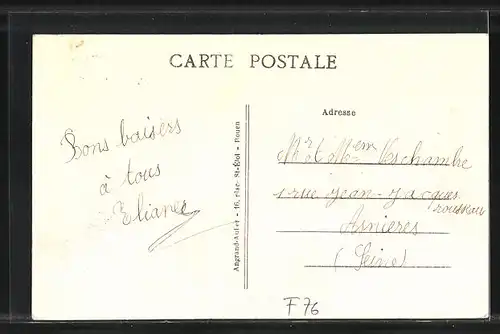 CARTE POSTALE
Bons baisers
à tous
Eliane
Angrand-Aufet - 16, place St-Eloi - Rouen
Adresse
Mr et Mem
1 rue jean-jacques
rousseau
Asnieres
(Seine)
F 76